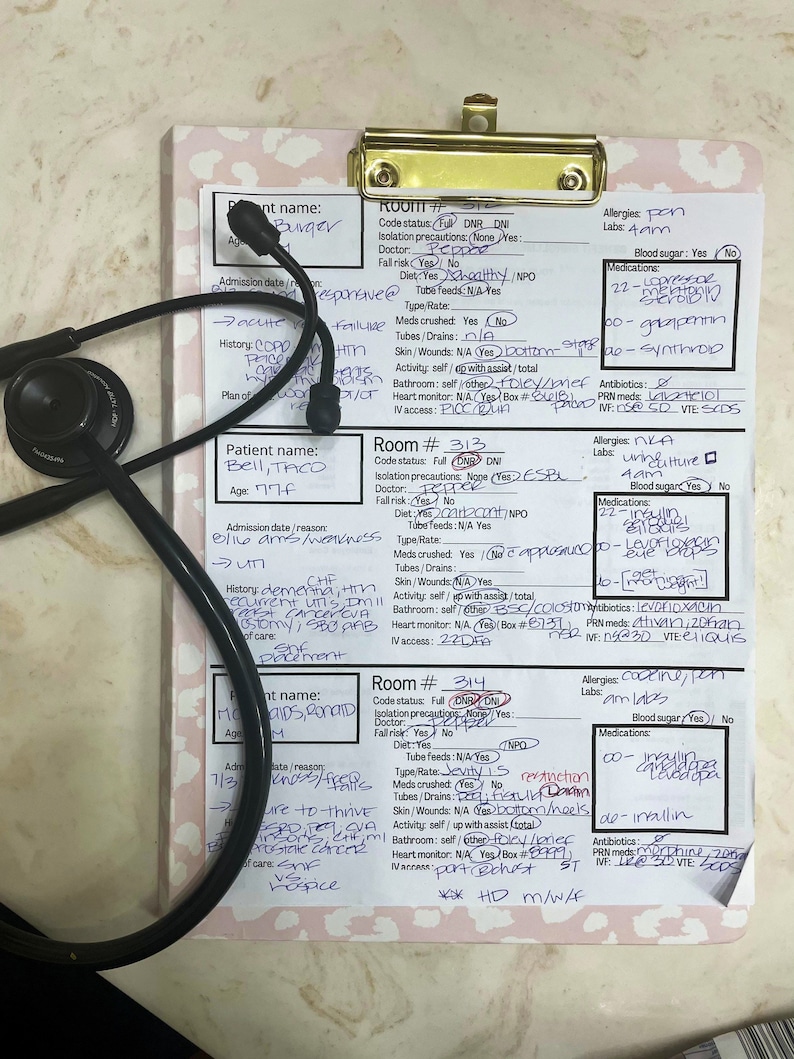 Patient name:
Burger
Age: M
Admission date / reason:
responsive@
→ acute failure
History: COPD HTN
Plan of
Room # 312
Code status: Full DNR DNI
Isolation precautions: None / Yes:
Doctor: Pepper
Fall risk: Yes / No
Diet: Yes healthy / NPO
Tube feeds: N/A Yes
Type/Rate:
Meds crushed: Yes / No
Tubes / Drains: n/A
Skin / Wounds: N/A Yes bottom- stage
Activity: self / up with assist / total
Bathroom: self / other: foley/brief
Heart monitor: N/A Yes (Box #8618) paced
IV access: PICC RUA
Allergies: pcn
Labs: 4am
Blood sugar: Yes / No
Medications:
22- lopressor
melatonin
steroid IV
00- gabapentin
06- synthroid
Antibiotics: Ø
PRN meds: labetelol
IVF: ns@50 VTE: SCDS
Patient name:
Bell, TACO
Age: 77f
Admission date / reason:
8/16 ams/weakness
→ UTI
History: dementia, HTN CHF
recurrent UTIs, DM II
breast cancer CVA
ostomy, SBO, AFIB
of care: SNF
placement
Room # 313
Code status: Full DNR DNI
Isolation precautions: None Yes: ESBL
Doctor: Pepper
Fall risk: Yes / No
Diet: Yes carbcont / NPO
Tube feeds: N/A Yes
Type/Rate:
Meds crushed: Yes / No c applesauce
Tubes / Drains:
Skin / Wounds: N/A Yes
Activity: self / up with assist / total
Bathroom: self / other: BSC/colostomy
Heart monitor: N/A Yes (Box #8737) nsr
IV access: 22DFA
Allergies: NKA
Labs: urine culture
4am
Blood sugar: Yes / No
Medications:
22- insulin
seroquel
eliquis
00- Levofloxacin
eye drops
06- [get morning weight!]
Antibiotics: levofloxacin
PRN meds: ativan, zofran
IVF: ns@30 VTE: eliquis
Patient name:
McDonalds, RONALD
Age: M
Admission date / reason:
7/3 weakness/freq falls
→ failure to thrive
ESRD, PEG, CVA
Parkinsons, CHF, MI
prostate cancer
of care: SNF
vs.
hospice
Room # 314
Code status: Full DNR DNI
Isolation precautions: None / Yes:
Doctor: Pepper
Fall risk: Yes / No
Diet: Yes / NPO
Tube feeds: N/A Yes
Type/Rate: Jevity 1.5
Meds crushed: Yes / No
Tubes / Drains: peg, fistula restriction L arm
Skin / Wounds: N/A Yes bottom/heels
Activity: self / up with assist / total
Bathroom: self / other: foley/brief
Heart monitor: N/A Yes (Box #8999) ST
IV access: port @ chest
** HD m/w/f
Allergies: codeine, pcn
Labs:
am labs
Blood sugar: Yes / No
Medications:
00- insulin
carbidopa
levodopa
06- insulin
Antibiotics: Ø
PRN meds: morphine, zofran
IVF: LR@30 VTE: SCDS
MDF